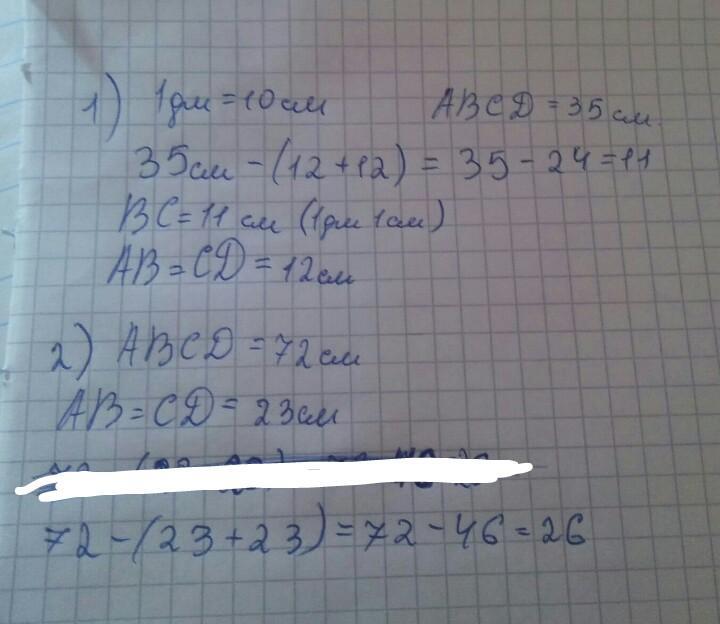 1) 1дм = 10см ABCD = 35см.
35см - (12 + 12) = 35 - 24 = 11
BC = 11 см (1дм 1см)
AB = CD = 12см
2) ABCD = 72см
AB = CD = 23см
72 - (23 + 23) = 72 - 46 = 26